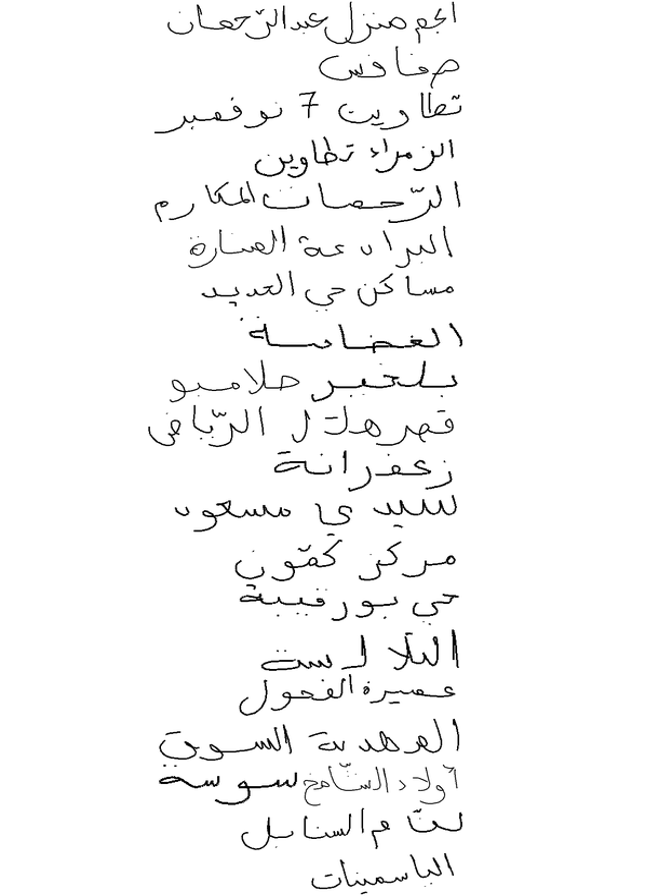 الجم منزل عبد الرّحمان
صفاقس
تطاوين 7 نوفمبر
الزهراء تطاوين
الرّحمات المكارم
البرادعة المنارة
مساكن حي الحديد
الغضابنة
بلخير صلامبو
قصر هلال الرّياض
زعفرانة
سيدي مسعود
مركز كمّون
حي بورقيبة
التلالسة
عميرة الفحول
المهدية السوق
أولاد الشّامخ سوسة
السنابل
الياسمينات